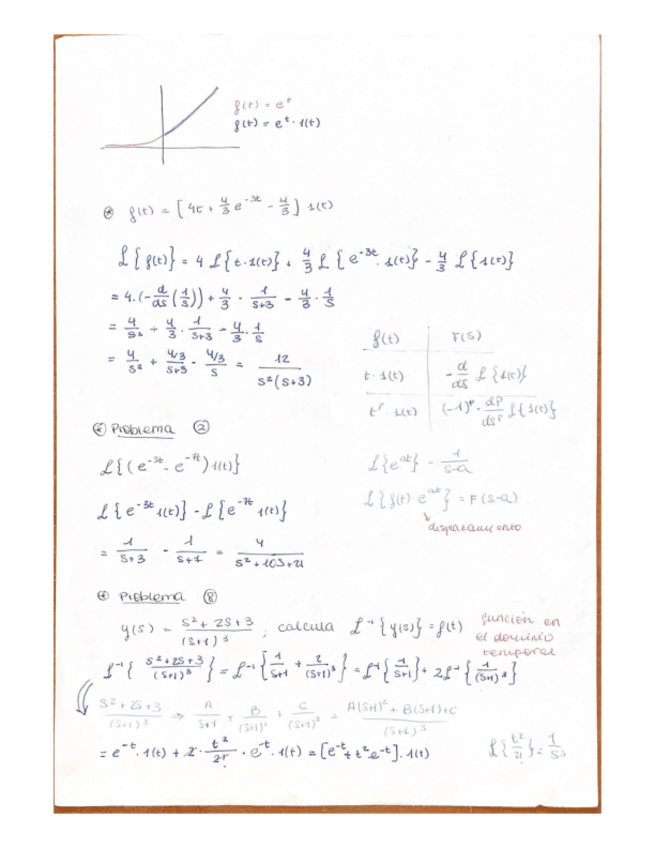 f(t) = e^t
f(t) = e^t · 1(t)
⊛ f(t) = [4t + 4/3 e^{-3t} - 4/3] 1(t)
ℒ{f(t)} = 4 ℒ{t·1(t)} + 4/3 ℒ{e^{-3t}·1(t)} - 4/3 ℒ{1(t)}
= 4·(-d/ds(1/s)) + 4/3 · 1/s+3 - 4/3 · 1/s
= 4/s² + 4/3 · 1/s+3 - 4/3 · 1/s
= 4/s² + 4/3/s+3 - 4/3/s = 12/s²(s+3)
f(t) F(s)
t·1(t) -d/ds ℒ{1(t)}
t^p·1(t) (-1)^p · d^p/ds^p ℒ{1(t)}
Problema ②
ℒ{(e^{-3t} - e^{-7t}) 1(t)}
ℒ{e^{-3t} 1(t)} - ℒ{e^{-7t} 1(t)}
= 1/s+3 - 1/s+7 = 4/s²+10s+21
ℒ{e^{at}} = 1/s-a
ℒ{f(t)·e^{at}} = F(s-a)
desplazamiento
Problema ⑧
y(s) = s²+2s+3/(s+1)³ ; calcula ℒ⁻¹{y(s)} = f(t)
función en
el dominio
temporal
ℒ⁻¹{s²+2s+3/(s+1)³} = ℒ⁻¹{1/s+1 + 2/(s+1)³} = ℒ⁻¹{1/s+1} + 2ℒ⁻¹{1/(s+1)³}
s²+2s+3/(s+1)³ ⇒ A/s+1 + B/(s+1)² + C/(s+1)³ = A(s+1)²+B(s+1)+C/(s+1)³
= e^{-t}·1(t) + 2·t²/2!·e^{-t}·1(t) = [e^{-t} + t²e^{-t}]·1(t)
ℒ{t²/2!} = 1/s³